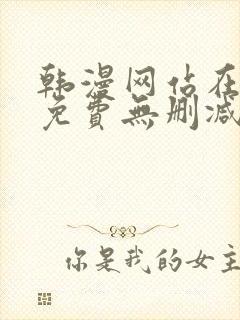 韩漫网站在
免費無删减
你是我的女主